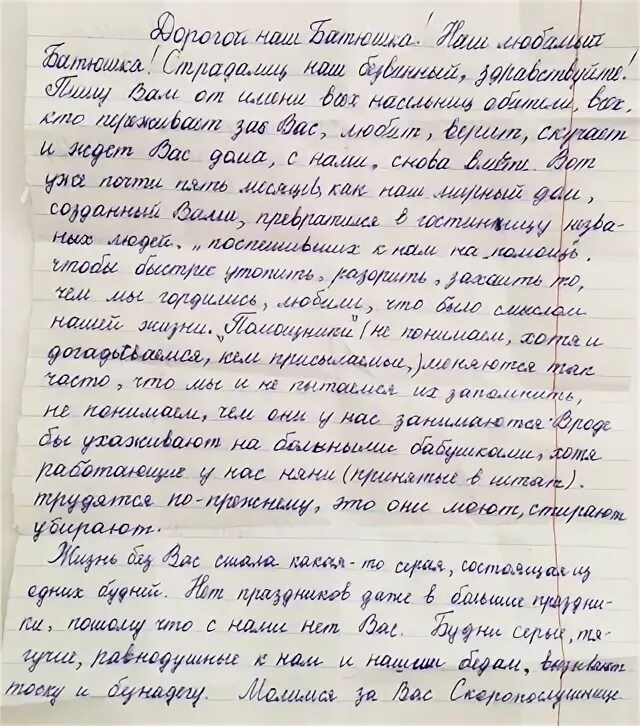 Дорогой наш Батюшка! Наш любимый
Батюшка! Страдалиц наш безвинный, здравствуйте!
Пишу Вам от имени всех насельниц обители, всех,
кто переживает за Вас, любит, верит, скучает
и ждет Вас дома, с нами, снова вместе. Вот
уже почти пять месяцев, как наш мирный дом,
созданный Вами, превратился в гостиницу незва-
ных людей, "поспешивших к нам на помощь",
чтобы быстрее утопить, разорить, захаить то,
чем мы гордились, любили, что было смыслом
нашей жизни. "Помощники" (не понимаем, хотя и
догадываемся, кем присылаемы,) меняются так
часто, что мы и не пытаемся их запомнить,
не понимаем, чем они у нас занимаются. Вроде
бы ухаживают на больными бабушками, хотя
работающие у нас няни (принятые в штат)
трудятся по-прежнему, это они моют, стирают
убирают.
Жизнь без Вас стала какая-то серая, состоящая из
одних будней. Нет праздников даже в большие праздни-
ки, потому что с нами нет Вас. Будни серые, тя-
гучие, равнодушные к нам и нашим бедам, вызывают
тоску и безнадегу. Молимся за Вас Скоропослушнице